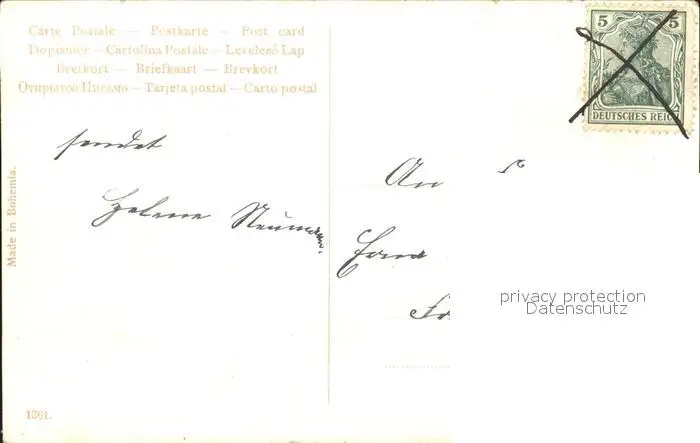 Carte Postale — Postkarte — Post card
Dopisnice — Cartolina Postale — Levelező Lap
Brefkort — Briefkaart — Brevkort
Открытое Письмо — Tarjeta postal — Carto postal
sendet
Helene Neumann.
An
Made in Bohemia.
1861.
5 5
DEUTSCHES REICH
privacy protection
Datenschutz